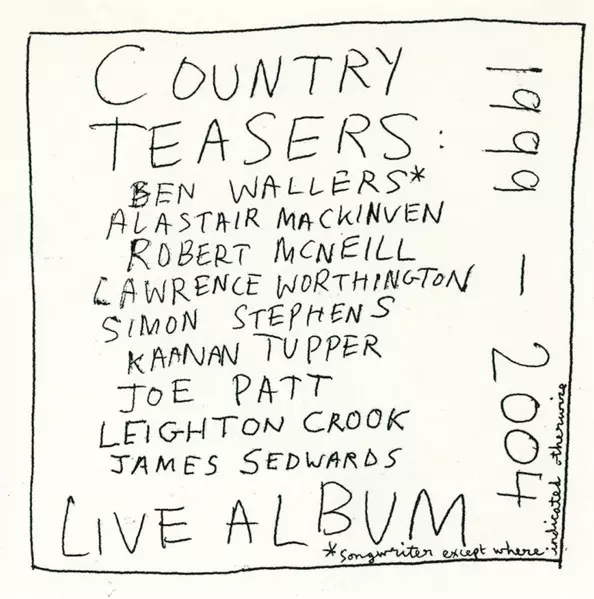 COUNTRY
TEASERS:
BEN WALLERS*
ALASTAIR MACKINVEN
ROBERT MCNEILL
LAWRENCE WORTHINGTON
SIMON STEPHENS
KAANAN TUPPER
JOE PATT
LEIGHTON CROOK
JAMES SEDWARDS
LIVE ALBUM
1999 - 2004
*songwriter except where indicated otherwize